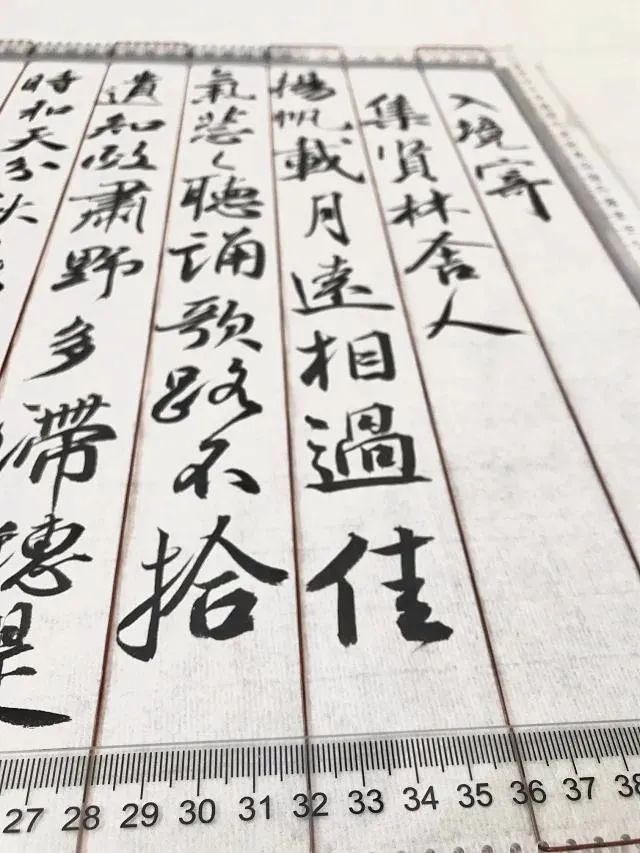 入境寄
集賢林舍人
揚帆載月遠相過佳
氣葱々聽誦歌路不拾
遺知政肅野多滯穗是
時和天分秋
27 28 29 30 31 32 33 34 35 36 37 38